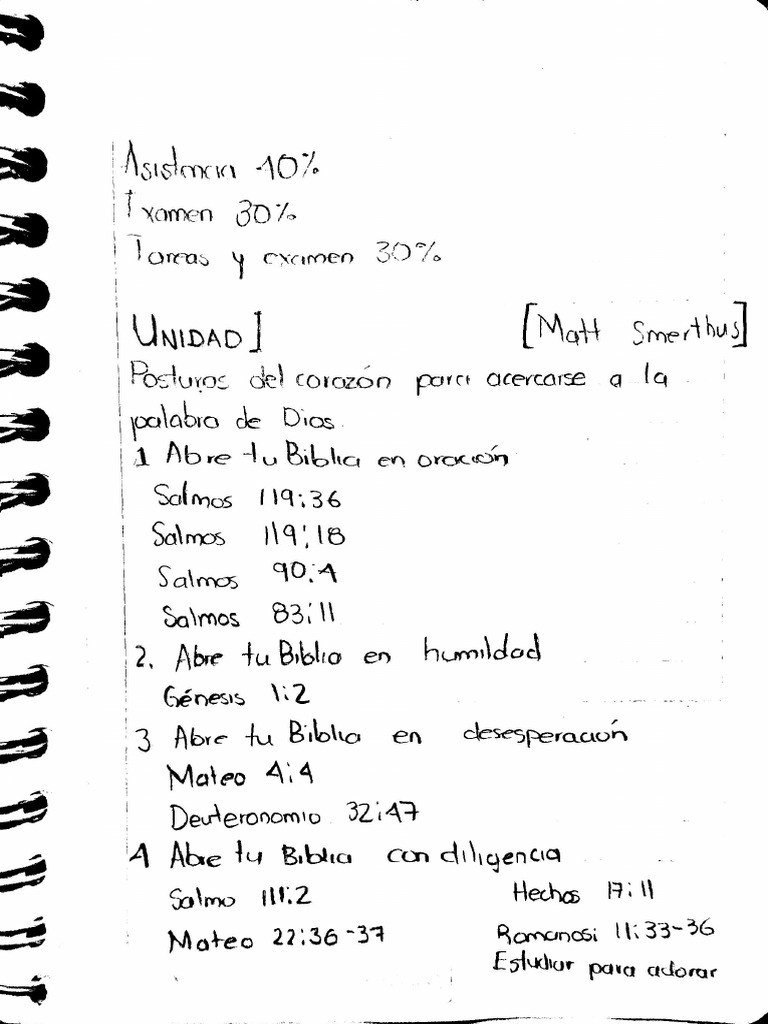 Asistencia 40%
Examen 30%
Tareas y examen 30%
UNIDAD 1 [Matt Smerthus]
Posturas del corazón para acercarse a la
palabra de Dios.
1 Abre tu Biblia en oración
Salmos 119:36
Salmos 119:18
Salmos 90:4
Salmos 83:11
2. Abre tu Biblia en humildad
Génesis 1:2
3 Abre tu Biblia en desesperación
Mateo 4:4
Deuteronomio 32:47
4 Abre tu Biblia con diligencia
Salmo 111:2 Hechos 17:11
Mateo 22:36-37 Romanosi 11:33-36
Estudiar para adorar